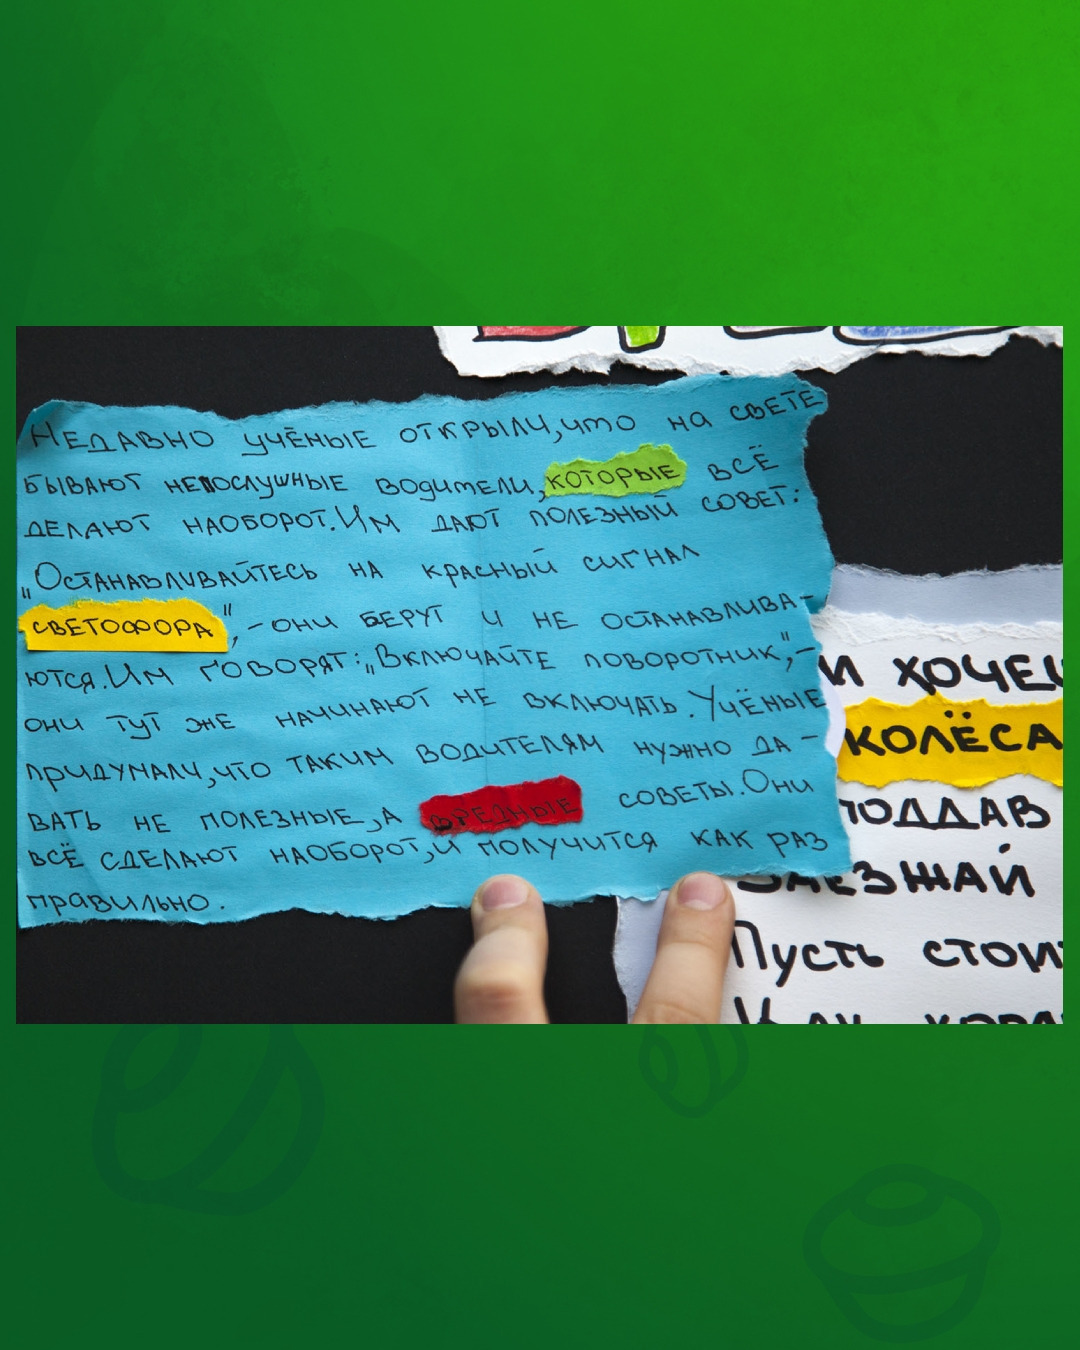 Недавно учёные открыли, что на свете
бывают непослушные водители, которые всё
делают наоборот. Им дают полезный совет:
„Останавливайтесь на красный сигнал
светофора", - они берут и не останавлива-
ются. Им говорят: „Включайте поворотник", -
они тут же начинают не включать. Учёные
придумали, что таким водителям нужно да-
вать не полезные, а вредные советы. Они
всё сделают наоборот, и получится как раз
правильно.
И ХОЧЕШ
КОЛЁСА
ПОДДАВ
ЗАЕЗЖАЙ
Пусть стоит